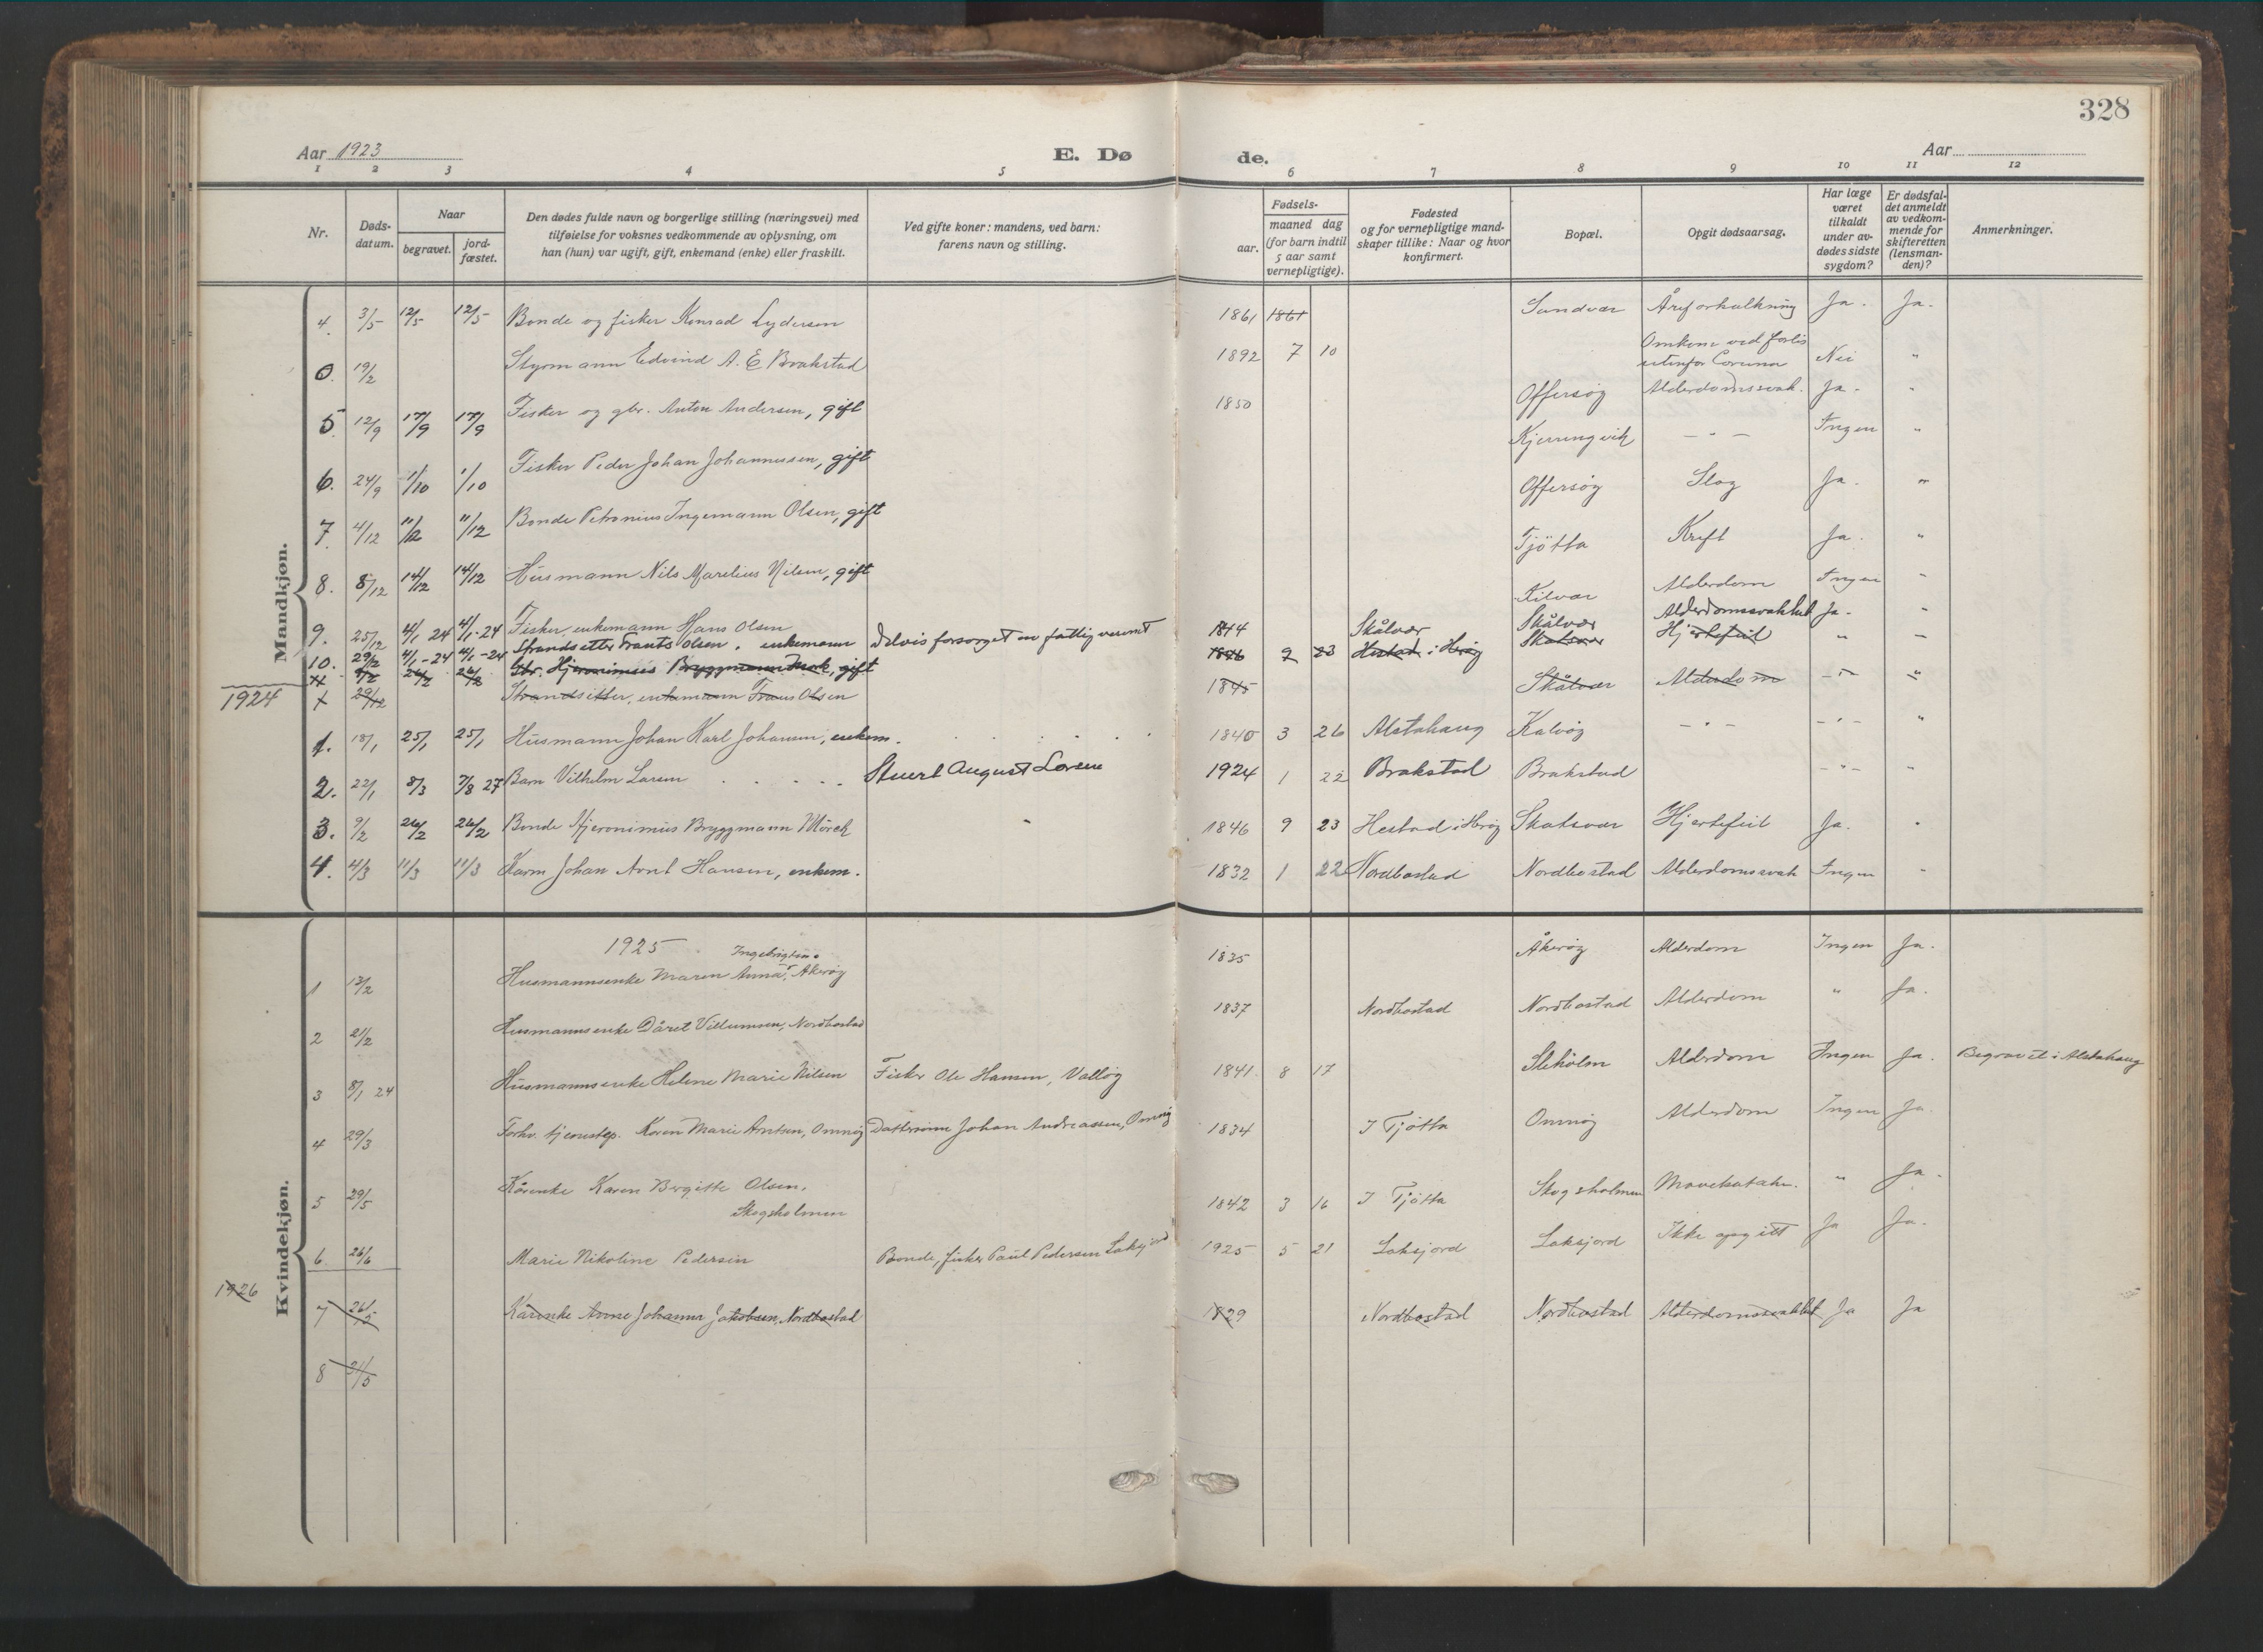 328
Aar 1923
E. Dø
de.
Aar
1 2 3 4 5 6 7 8 9 10 11 12
Nr.
Døds-
datum.
Naar
begravet.
jord-
fæstet.
Den dødes fulde navn og borgerlige stilling (næringsvei) med
tilføielse for voksnes vedkommende av oplysning, om
han (hun) var ugift, gift, enkemand (enke) eller fraskilt.
Ved gifte koner: mandens, ved barn:
farens navn og stilling.
Fødsels-
aar.
maaned dag
(for barn indtil
5 aar samt
vernepligtige).
Fødested
og for vernepligtige mand-
skaper tillike: Naar og hvor
konfirmert.
Bopæl.
Opgit dødsaarsag.
Har læge
været
tilkaldt
under av-
dødes sidste
sygdom?
Er dødsfal-
det anmeldt
av vedkom-
mende for
skifteretten
(lensman-
den)?
Anmerkninger.
Mandkjøn.
4. 3/5 12/5 12/5 Bonde og fisker Konrad Lydersen 1861 1861 Sandvær Åreforkalkning Ja. Ja.
0. 19/2 Styrmann Edvind A. E Brakstad 1892 7 10 Omkom ved forlis
utenfor Coruna Nei "
5. 12/9 17/9 17/9 Fisker og gbr. Anton Andersen, gift 1850 Offersøy Alderdomssvak. Ja. "
6. 24/9 1/10 1/10 Fisker Peder Johan Johannessen, gift Kjerringvik — " — Ingen "
7. 4/12 11/12 11/12 Bonde Petronius Ingemann Olsen, gift Offersøy Slag Ja. "
8. 8/12 14/12 14/12 Husmann Nils Marelius Nilsen, gift Tjötta Kreft Ja. "
Kilvær Alderdom Ingen "
9. 25/12 4/1 24 4/1-24 Fisker, enkemann Hans Olsen 1844 Skålvær Skålvær Alderdomssvakhet Ja. "
10. 29/12 4/1-24 4/1-24 Strandsitter Frants Olsen, enkemann Delvis forsørget av fattigvesenet
Gbr. Hjeronimus Bryggmann Mørk, gift 1846 9 23 Hestad i Herøy Skatsvær Hjertefeil " "
1924
x 29/12 Strandsitter, enkemann Frans Olsen 1845 Skålvær Alderdom - " - "
1. 18/1 25/1 25/1 Husmann Johan Karl Johansen, enkem. 1840 3 26 Alstahaug Kalvøy - " - - " - "
2. 22/1 8/3 7/8 27 Barn Vilhelm Larsen Stuert August Larsen 1924 1 22 Brakstad Brakstad - " - "
3. 9/2 26/2 26/2 Bonde Hjeronimus Bryggmann Mörch 1846 9 23 Hestad i Herøy Skatsvær Hjertefeil Ja. "
4. 4/3 11/3 11/3 Kårm Johan Arnt Hansen, enkem. 1832 1 22 Nordbostad Nordbostad Alderdomssvak Ingen "
Kvindekjøn.
1925
1 13/2 Husmannsenke Maren Anna Ingebrigtsen, Åkerøy 1835 Åkerøy Alderdom Ingen Ja.
2 21/2 Husmannsenke Dåret Villumsen, Nordbostad 1837 Nordbostad Nordbostad Alderdom " Ja.
3 8/1 24 Husmannsenke Helene Marie Nilsen Fisker Ole Hansen, Valløy 1841 8 17 Alderdom Ingen Ja. Begravet i Alstahaug
4 29/3 Forhv. tjenestep. Karen Marie Arntsen, Omnøy Dattersønn Johan Andreassen, Omnøy 1834 I Tjøtta Omnøy Alderdom Ingen Ja.
5 29/5 Kårenke Karen Bergitte Olsen,
Skogsholmen 1842 3 16 I Tjøtta Skogsholmen Mavekatahr. " Ja.
6 26/6 Marie Nikoline Pedersen Bonde, fisker Paul Pedersen Laksjord 1925 5 21 Laksjord Laksjord Ikke opgitt Ja Ja.
1926
7 26/5 Kårenke Anne Johanna Jakobsen, Nordbostad 1829 Nordbostad Nordbostad Alderdomssvakhet Ja Ja
8 31/5